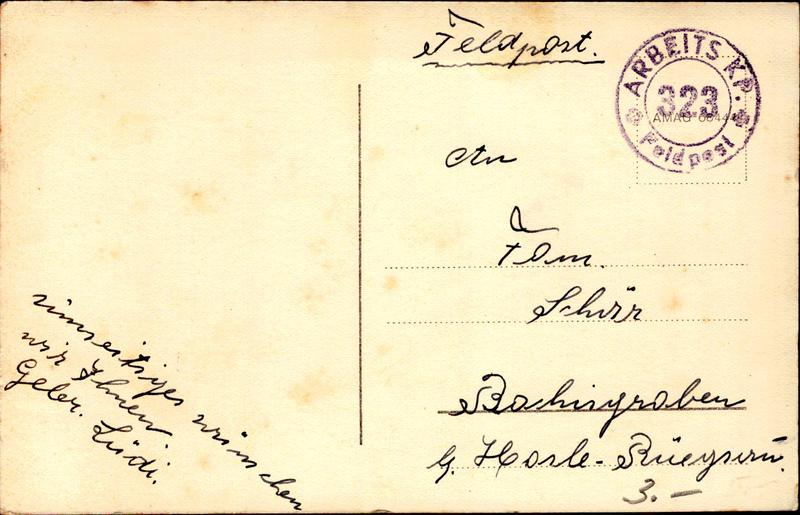 Feldpost.
ARBEITS KP.
323
Feldpost
AMAG
An
Fam.
Schär
Bachisgraben
b. Hasle-Rüegsau.
3.-
wünschen
wir Ihnen
Gebr. Lüdi.